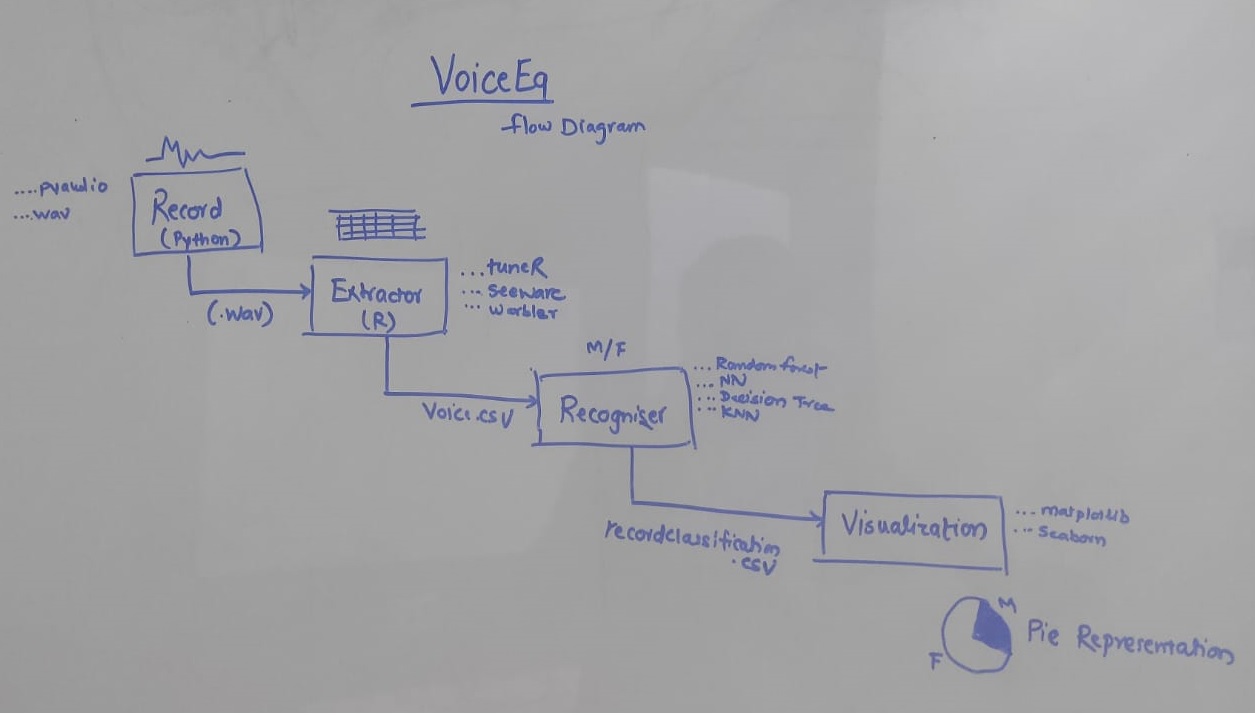 VoiceEq
flow Diagram
....pyaudio
...wav
Record
(Python)
(.wav)
Extractor
(R)
...tuneR
... Seewave
... warbler
Voice.csv
M/F
Recogniser
...Random forest
...NN
... Decision Tree
... KNN
recordclassification
.csv
Visualization
...matplotlib
... Seaborn
M
F
Pie Representation